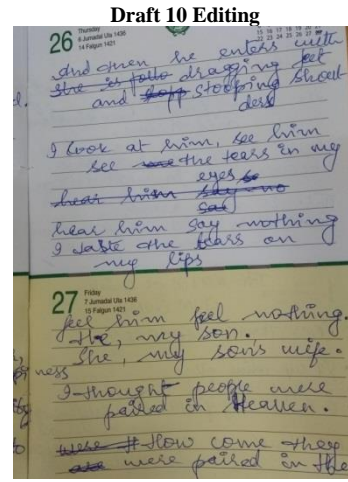 Draft 10 Editing
26 Thursday
6 Jumadal Ula 1436
14 Falgun 1421
And then he enters with
she is follo dragging feet
and stooping shoul
ders
I look at him, see him
see the tears in my
eyes
hear him say no
sad
hear him say nothing
I taste the tears on
my lips
27 Friday
7 Jumadal Ula 1436
15 Falgun 1421
feel him feel nothing.
He, my son.
She, my son's wife.
ness
I thought people were
paired in Heaven.
were How come they
are were paired in the